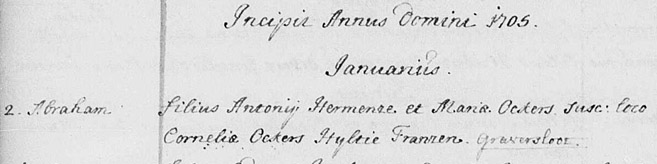 Incipit Annus Domini 1705.
Januarius.
2. Abraham filius Antonij Hermense et Mariæ Ockers susc: loco
Corneliæ Ockers Hyltie Franzen. Graversloot.